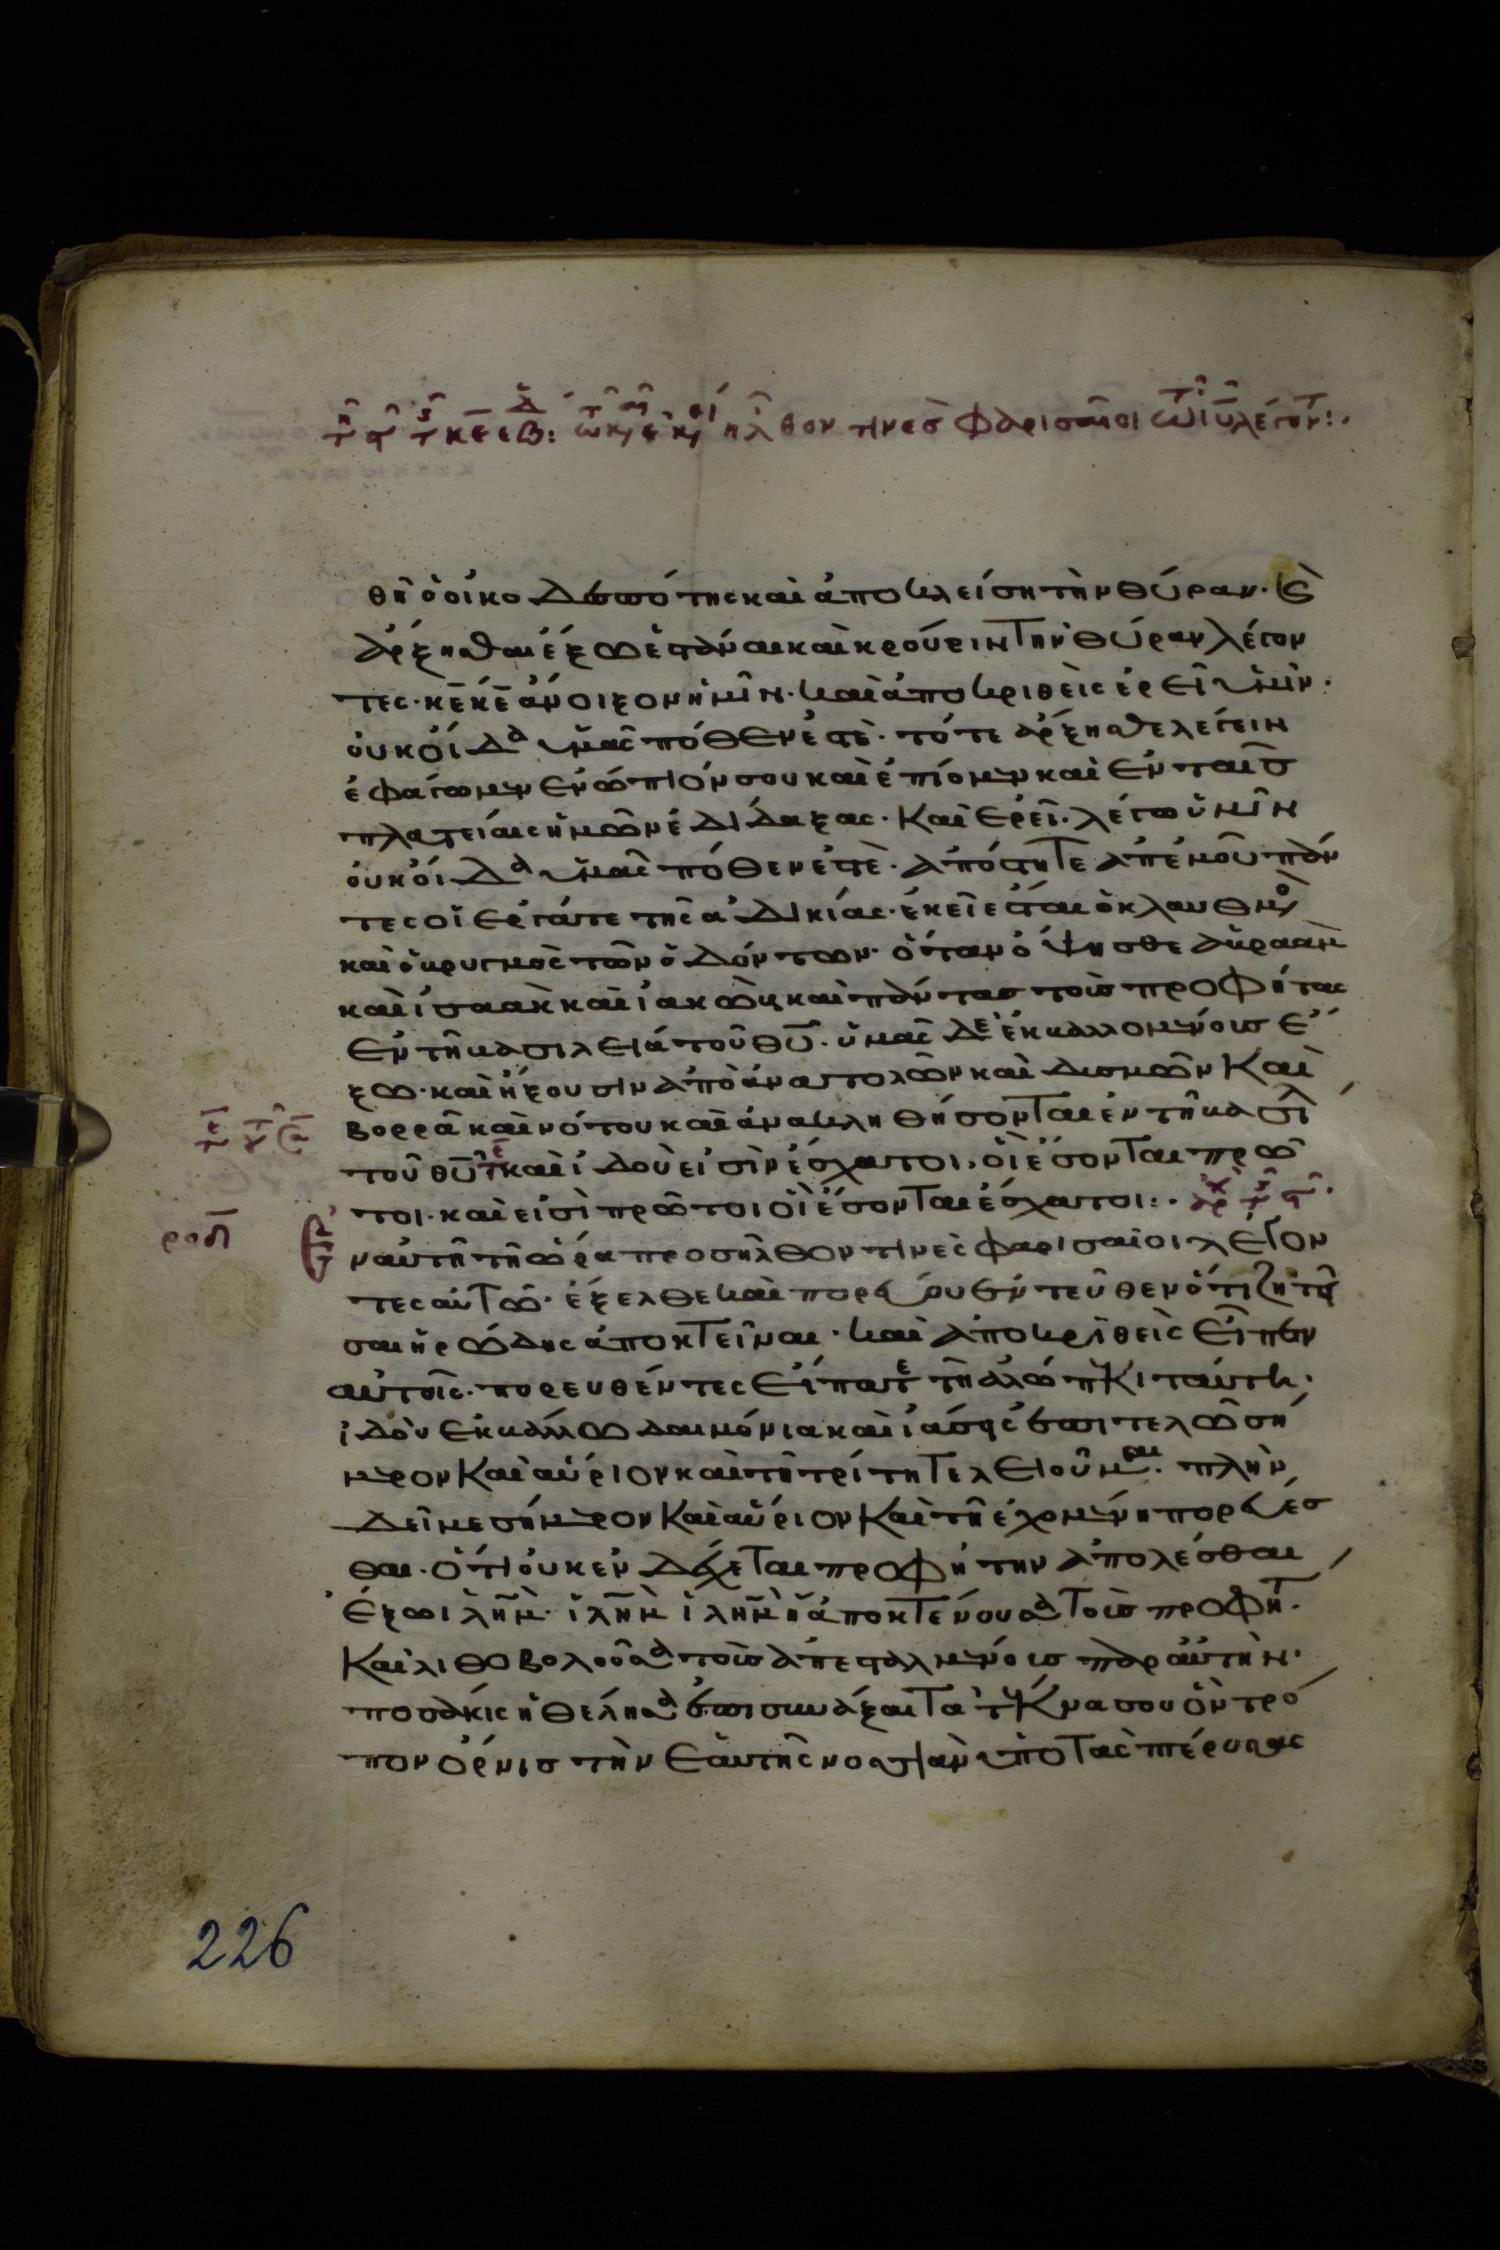 θῆ ὁ οἰκοδεσπότης καὶ ἀποκλείση τὴν θύραν· κ(αὶ)
ἄρξησθαι ἔξω ἑστάναι καὶ κρούειν τὴν θύραν λέγον
τες· κ̅ε̅ κ̅ε̅ ἄνοιξον ἡμῖν· καὶ ἀποκριθεὶς ἐρεῖ ὑμῖν·
οὐκ οἶδα ὑμᾶς πόθεν ἐστέ· τότε ἄρξησθε λέγειν
ἐφάγωμεν ἐνώπιόν σου καὶ ἐπίομεν καὶ ἐν ταῖς
πλατείαις ἡμῶν ἐδίδαξας· Καὶ ἐρεῖ· λέγω ὑμῖν
οὐκ οἶδα ὑμᾶς πόθεν ἐστέ· ἀπόστητε ἀπ' ἐμοῦ πάν
τες οἱ ἐργάται τῆς ἀδικίας· ἐκεῖ ἔσται ὁ κλαυθμὸ
καὶ ὁ βρυγμὸς τῶν ὀδόντων· ὅταν ὄψησθε ἀβραὰμ
καὶ ἰσαὰκ καὶ ἰακὼβ καὶ πάντας τοὺς προφήτας
ἐν τῆ βασιλεία τοῦ θ̅υ̅· ὑμᾶς δὲ ἐκβαλλομένους ἔ
ξω· καὶ ἥξουσιν ἀπὸ ἀνατολῶν καὶ δυσμῶν Καὶ
βορρᾶ καὶ νότου καὶ ἀνακληθήσονται ἐν τῆ βασιλ
τοῦ θ̅υ̅ καὶ ἰδοὺ εἰσὶν ἔσχατοι, οἳ ἔσονται πρῶ
τοι· καὶ εἰσὶ πρῶτοι οἳ ἔσονται ἔσχατοι:·
ροδ
Ἐν αὐτῆ τῆ ὥρα προσῆλθον τινὲς φαρισαῖοι λέγον
τες αὐτῶ· ἔξελθε καὶ πορεύου ἐντεῦθεν ὅτι ζητῆ
σαι ἡρώδης ἀποκτεῖναι· καὶ ἀποκριθεὶς εἶπεν
αὐτοῖς· πορευθέντες εἴπατε τῆ ἀλώπεκι ταύτη·
ἰδοὺ ἐκβάλλω δαιμόνια καὶ ἰάσεις ἐπιτελῶ σή
μερον Καὶ αὔριον καὶ τῆ τρίτη τελειοῦμαι· πλὴν
δεῖ με σήμερον Καὶ αὔριον Καὶ τῆ ἐχομένη πορεύεσ
θαι· ὅτι οὐκ ἐνδέχεται προφήτην ἀπολέσθαι
ἔξω ἰλ̅η̅μ̅· ἰλ̅η̅μ̅ ἰλ̅η̅μ̅ ἡ ἀποκτένουσα τοὺς προφητ·
Καὶ λιθοβολοῦσα τοὺς ἀπεσταλμένους παρ' αὐτὴν·
ποσάκις ἠθέλησα ἐπισυνάξαι τὰ τέκνα σου ὃν τρό
πον ὄρνις τὴν ἑαυτῆς νοσσιὰν ὑπὸ τὰς πτέρυγας
226